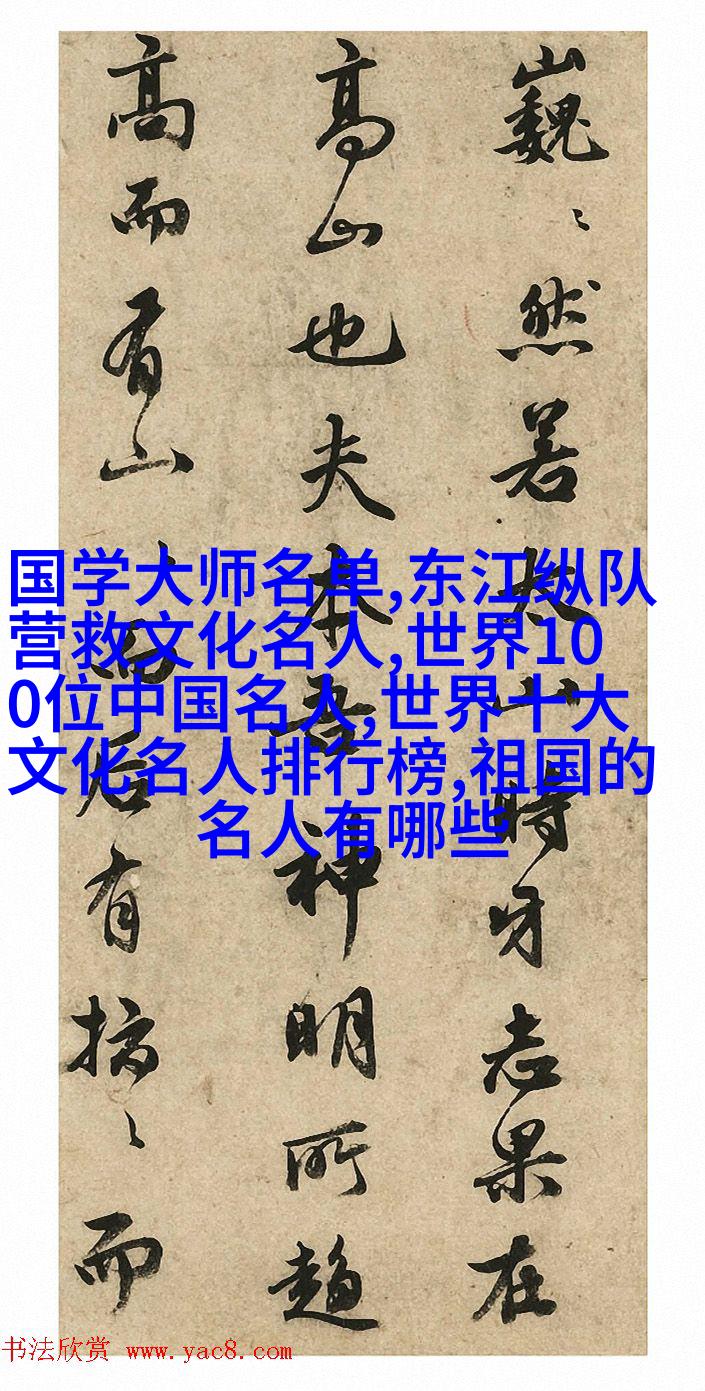 巍〻然若太山時牙志果在
高山也夫本吾神明所趨
高而有山而后有搞〻而
国学大师名单,东江纵队
营救文化名人,世界10
0位中国名人,世界十大
文化名人排行榜,祖国的
名人有哪些
书法欣赏 www.yac8.com